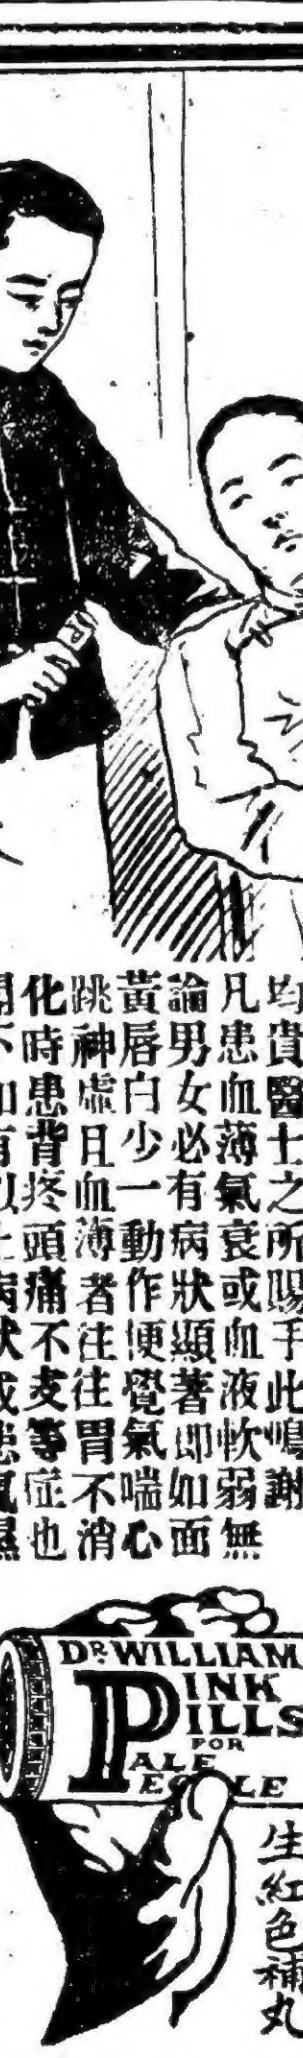 均貴醫士之所賜手此鳴謝
凡患血薄氣衰或血液軟弱無
論男女必有病狀顯著即如面
黃唇白少一動作便覺氣喘心
跳神虛且血薄者往往胃不消
化時患背疼頭痛不麦等症也
DR WILLIAM
PINK
PILLS
FOR
PALE
PEOPLE
生紅色補丸